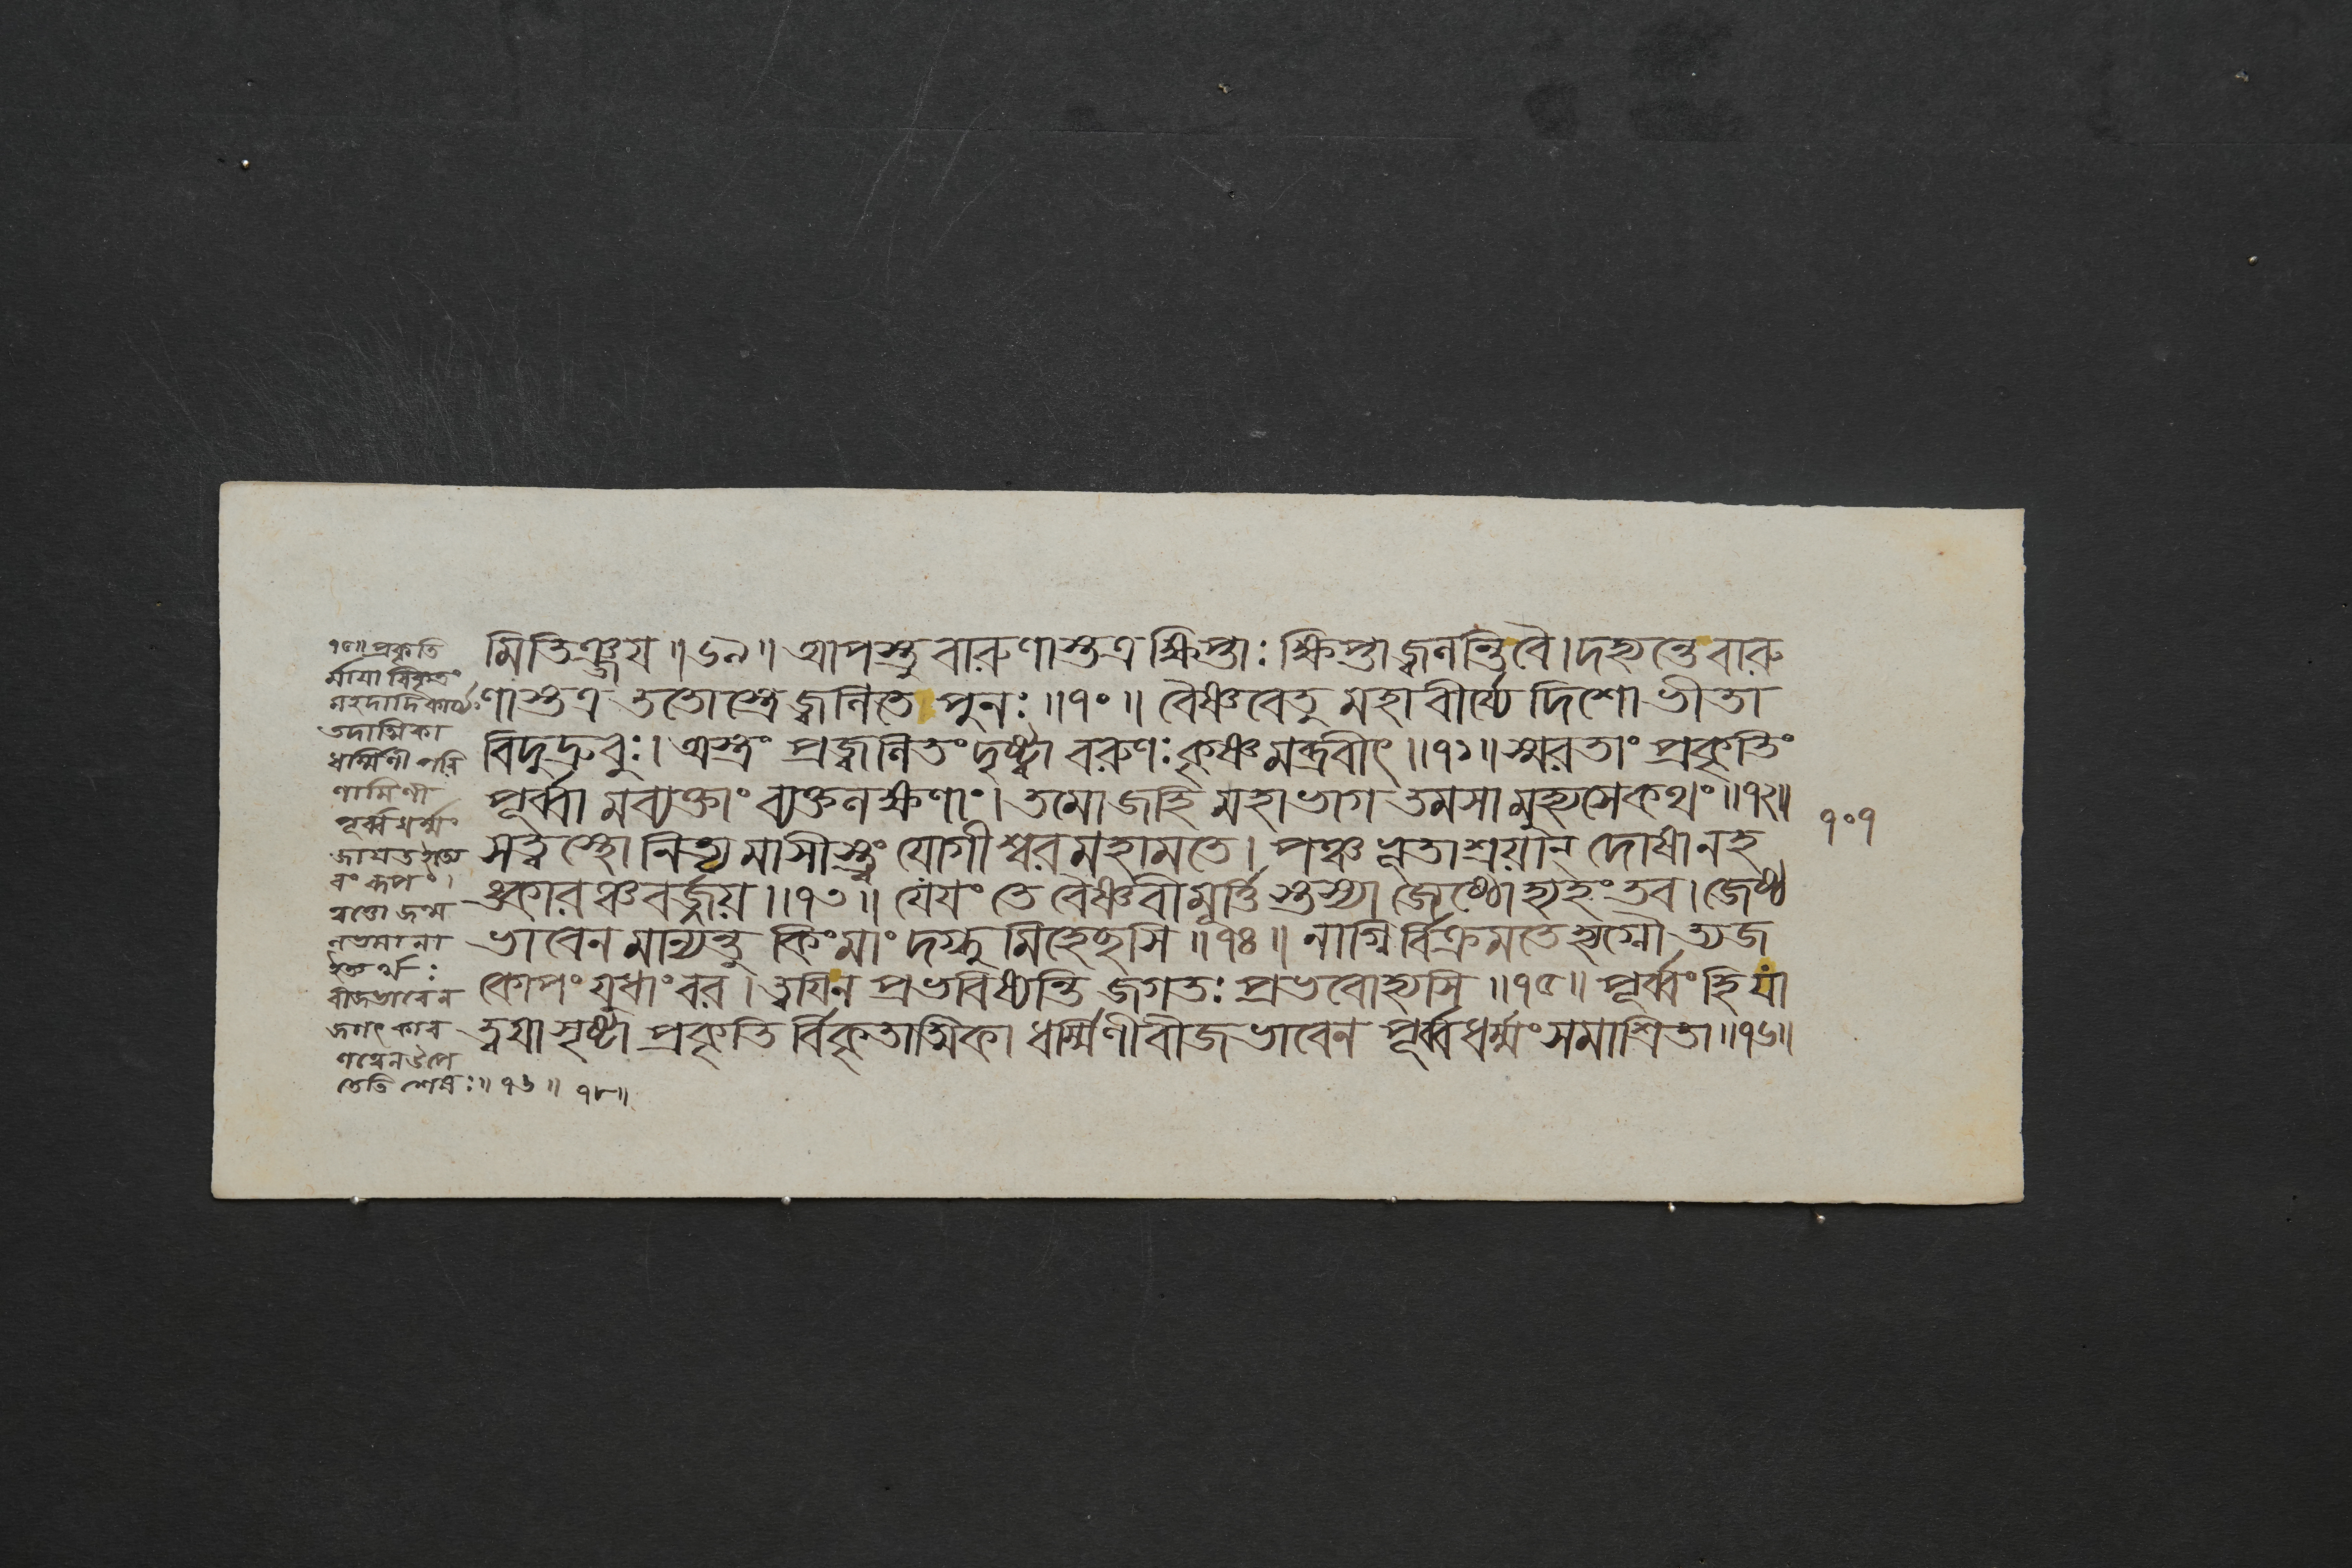 ৭৫॥ প্রকৃতি
র্মায়া বিকৃতং
মহদাদি কার্য্যং
তদাত্মিকা
ধর্ম্মিণী পরি
ণামিণী
পূর্ব্বধর্ম্মং
বীজভাবেন
জগৎ কার
তেতি শেষঃ॥ ৭৬ ॥ ৭৮॥
মিতিঞ্জয় ॥৬৯॥ আপস্তু বারুণাস্তত্র ক্ষিপ্তাঃ ক্ষিপ্তা জ্বলন্তি বৈ। দহ্যন্তে বারু
ণাস্তত্র ততোস্ত্রে জ্বলিতে পুনঃ ॥৭০॥ বৈষ্ণবেতু মহাবীর্য্যে দিশো ভীতা
বিদুদ্রুবুঃ। অস্ত্রং প্রজ্বলিতং দৃষ্ট্বা বরুণঃ কৃষ্ণমব্রবীৎ ॥৭১॥ স্মরতাং প্রকৃতিং
পূর্ব্বামব্যক্তাং ব্যক্তলক্ষণাং। তমোজহি মহাভাগ তমসা মুহ্যসে কথং ॥৭২॥
সত্ত্বস্থো নিত্যমাসীস্ত্বং যোগীশ্বর মহামতে। পঞ্চভূতাশ্রয়ান্ দোষানহ
ঙ্কারঞ্চ বর্জ্জয় ॥৭৩॥ যেয়ং তে বৈষ্ণবীমূর্ত্তিস্তস্যা জ্যেষ্ঠোহ্যহং তব। জ্যেষ্ঠ
ভাবেন মান্যন্তু কিংমাং দগ্ধুমিহেচ্ছসি ॥৭৪॥ নাগ্নির্বিক্রমতে হ্যগ্নৌ ত্যজ
কোপং যুধাংবর। ত্বয়িন প্রভবিষ্যন্তি জগতঃ প্রভবোহ্যসি ॥৭৫॥ পূর্ব্বংহি যা
ত্বয়া সৃষ্টা প্রকৃতির্বিকৃতাত্মিকা ধর্ম্মিণীবীজভাবেন পূর্ব্বধর্ম্মংসমাশ্রিতা ॥৭৬॥
৭০৭